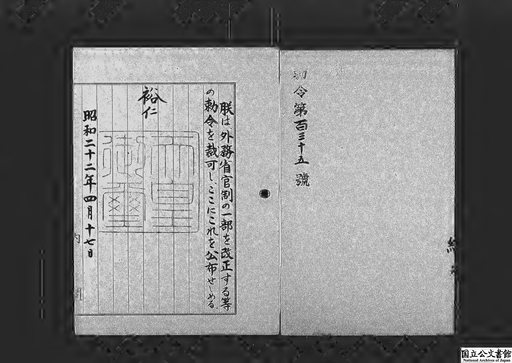 勅令第百三十五號
朕は外務省官制の一部を改正する等
の勅令を裁可し、ここにこれを公布せしめる
裕仁
天皇御璽
昭和二十二年四月十七日
内閣
国立公文書館
National Archives of Japan